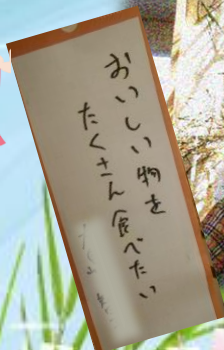 おいしい物を
たくさん食べたい